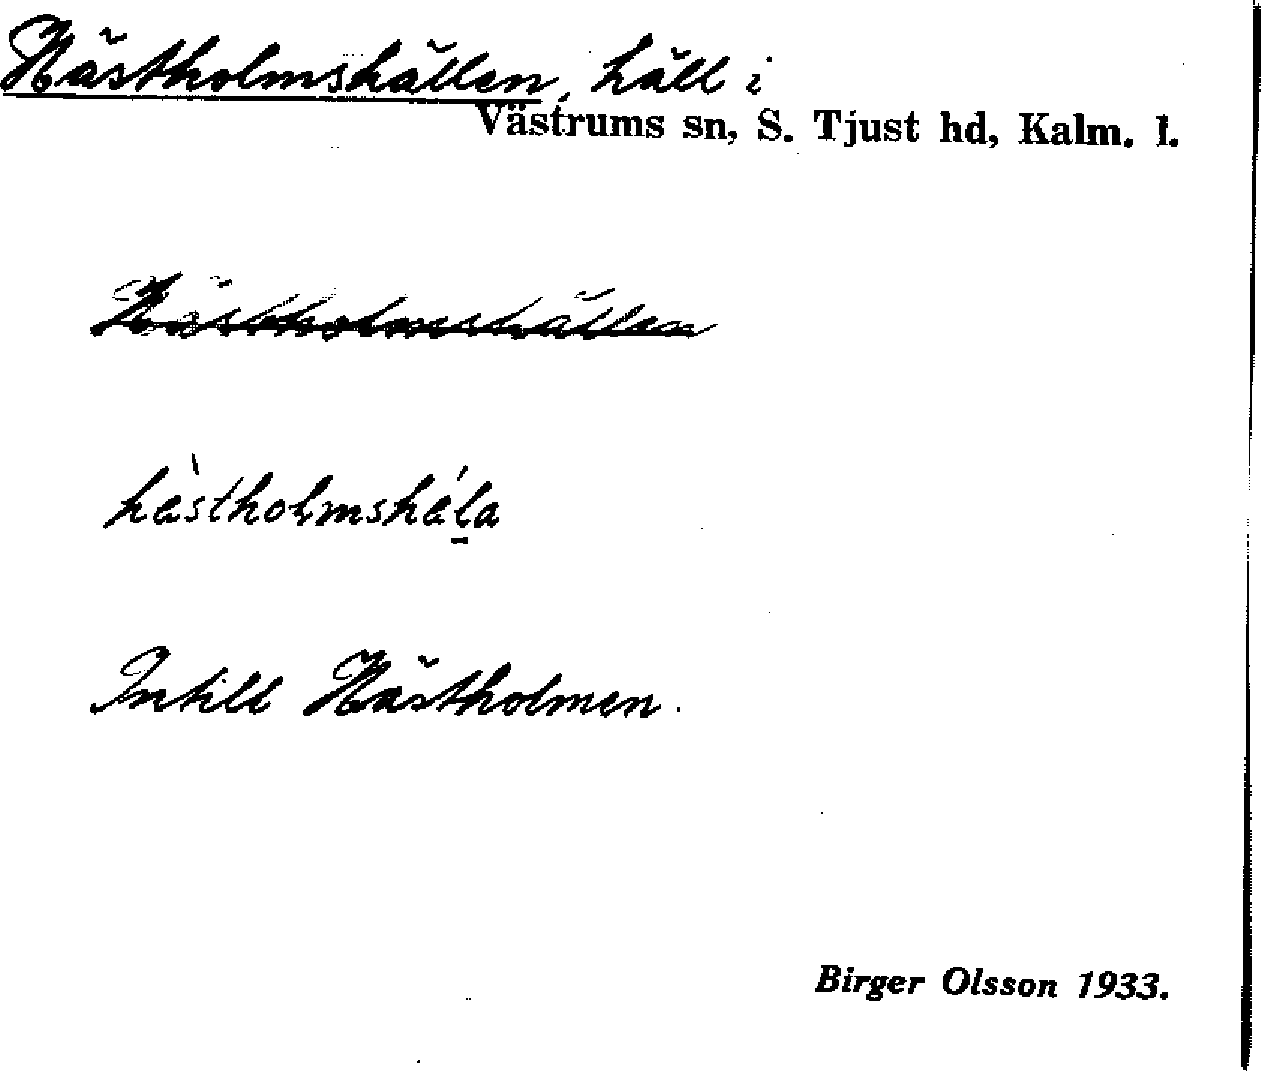 Hästholmshällen, häll i
Västrums sn, S. Tjust hd, Kalm. l.
Hästholmshällen
hàstholmshála
Intill Hästholmen.
Birger Olsson 1933.